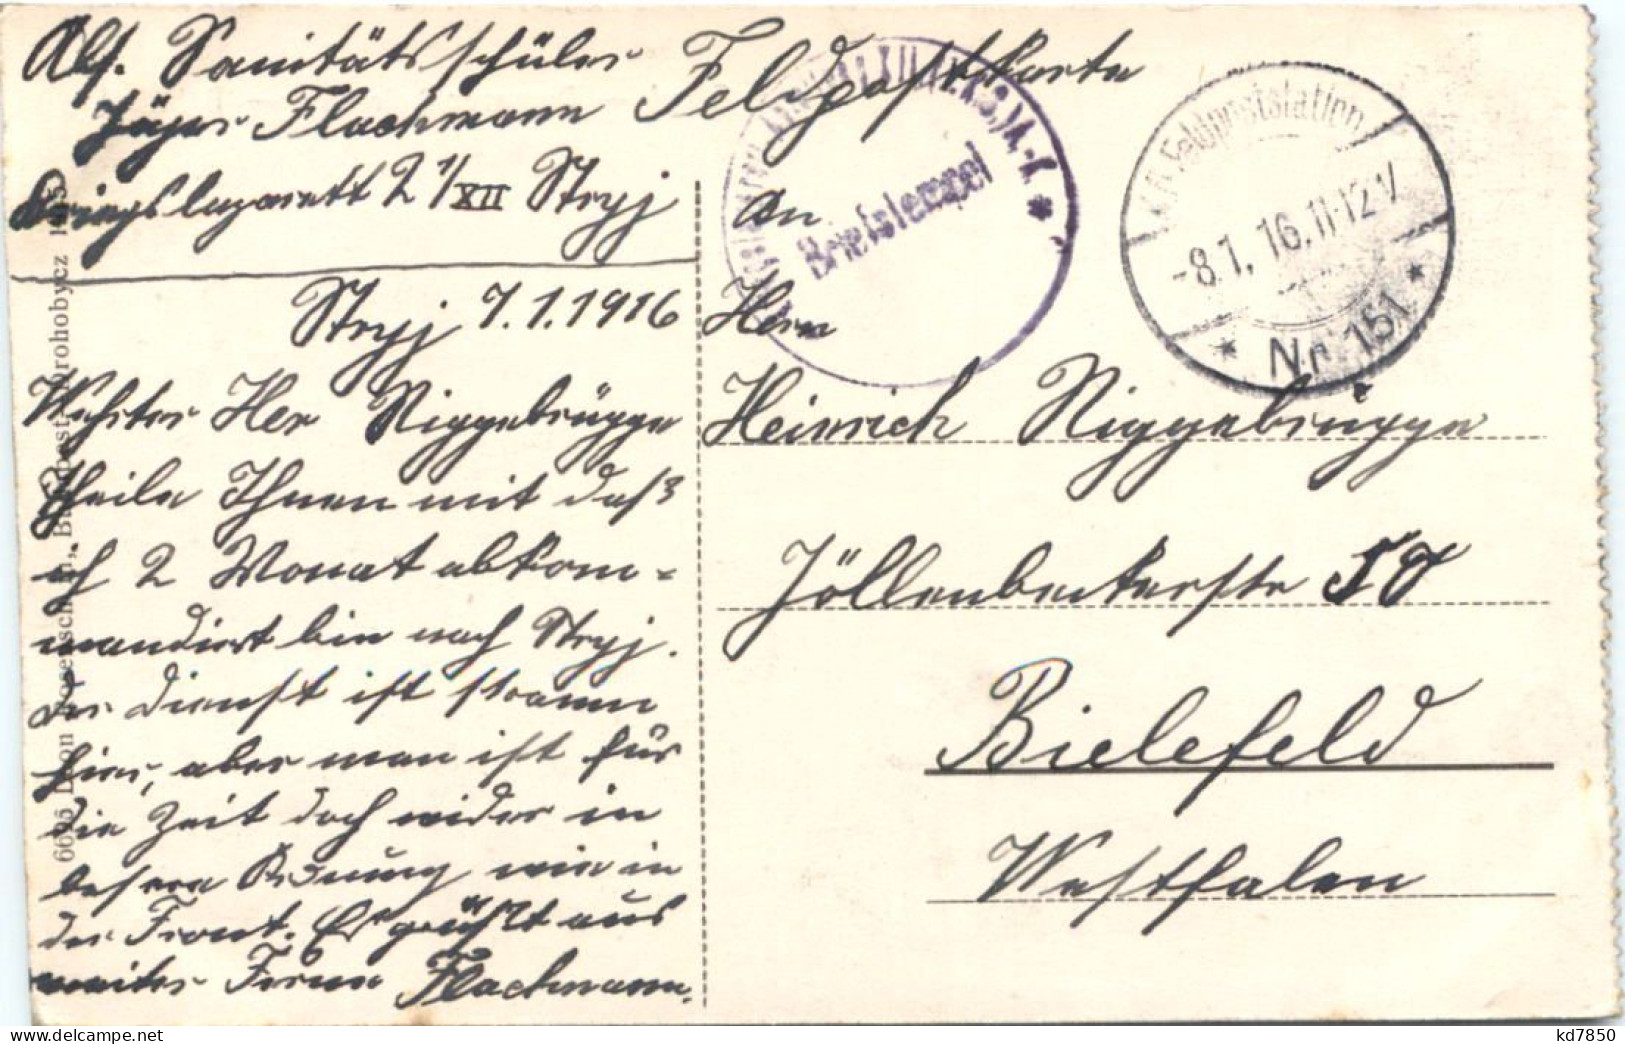 Abs. Sanitätsschüler
Jäger Flachmann
Kriegslazarett 2 1/XII Stryj
Feldpostkarte
Stryj 7.1.1916
Wehrter Her Niggebrügge
theile Ihnen mit daß
ich 2 Monat abkom=
mandirt bin nach Stryj.
Der dienst ist stramm
hier, aber man ist für
die Zeit doch wider in
besere Ordnung wie in
der Front. Es grüßt aus
weiter Ferne Flachmann.
An
Herrn
Heinrich Niggebrügge
Jöllenbeckerstr 50
Bielefeld
Westfalen
Briefstempel
Feldpoststation
-8.1.16.11-12V
* Nr. 151 *
Budapest-Drohobycz
kd7850